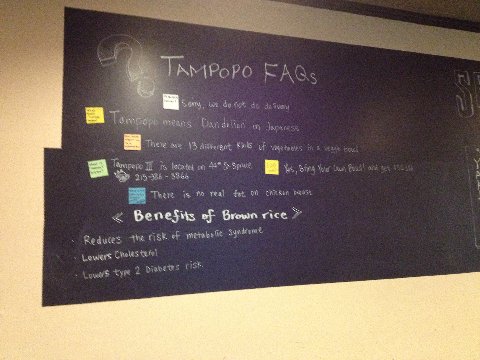 ?
TAMPOPO FAQs
Sorry, we do not do delivery
Tampopo means Dandelion in Japanese
There are 13 different kinds of vegetables in a veggie bowl
Tampopo III is located on 44th & Spruce
215-386-3866
Yes, Bring Your Own Bowl! and get
There is no real fat on chicken breast
« Benefits of Brown rice »
· Reduces the risk of metabolic syndrome
· Lowers Cholesterol
· Lowers type 2 Diabetes risk